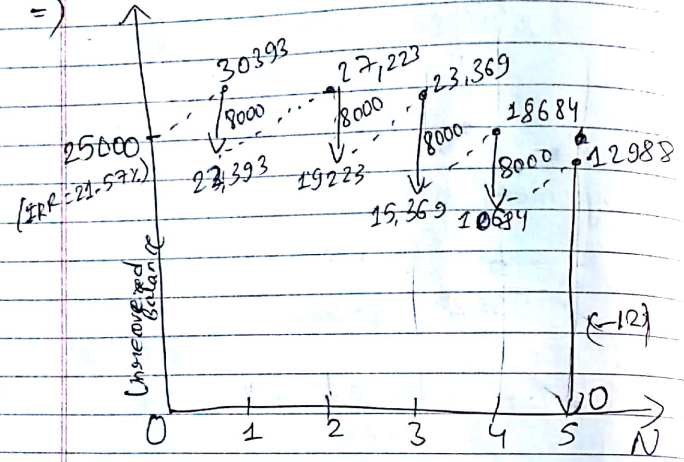 =)
30393
27,223
23,369
18684
12988
8000
8000
8000
8000
25000
(IRR=21.57%)
22,393
19223
15,369
10684
Unrecovered
Balance
(-12)
0
0 1 2 3 4 5 N